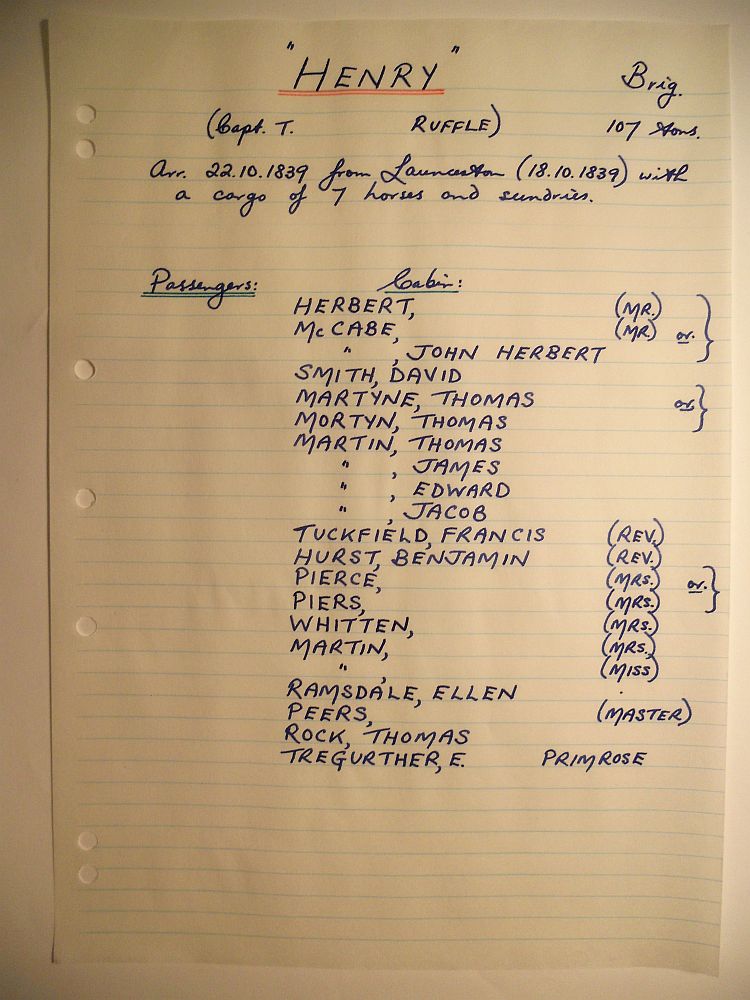 "HENRY" Brig.
(Capt. T. RUFFLE) 107 tons.
Arr. 22.10.1839 from Launceston (18.10.1839) with
a cargo of 7 horses and sundries.
Passengers: Cabin:
HERBERT, (MR.)
McCABE, (MR) or.
" , JOHN HERBERT
SMITH, DAVID
MARTYNE, THOMAS or
MORTYN, THOMAS
MARTIN, THOMAS
" , JAMES
" , EDWARD
" , JACOB
TUCKFIELD, FRANCIS (REV.)
HURST, BENJAMIN (REV.)
PIERCE, (MRS.) or.
PIERS, (MRS.)
WHITTEN, (MRS.)
MARTIN, (MRS.)
" , (MISS)
RAMSDALE, ELLEN
PEERS, (MASTER)
ROCK, THOMAS
TREGURTHER, E. PRIMROSE